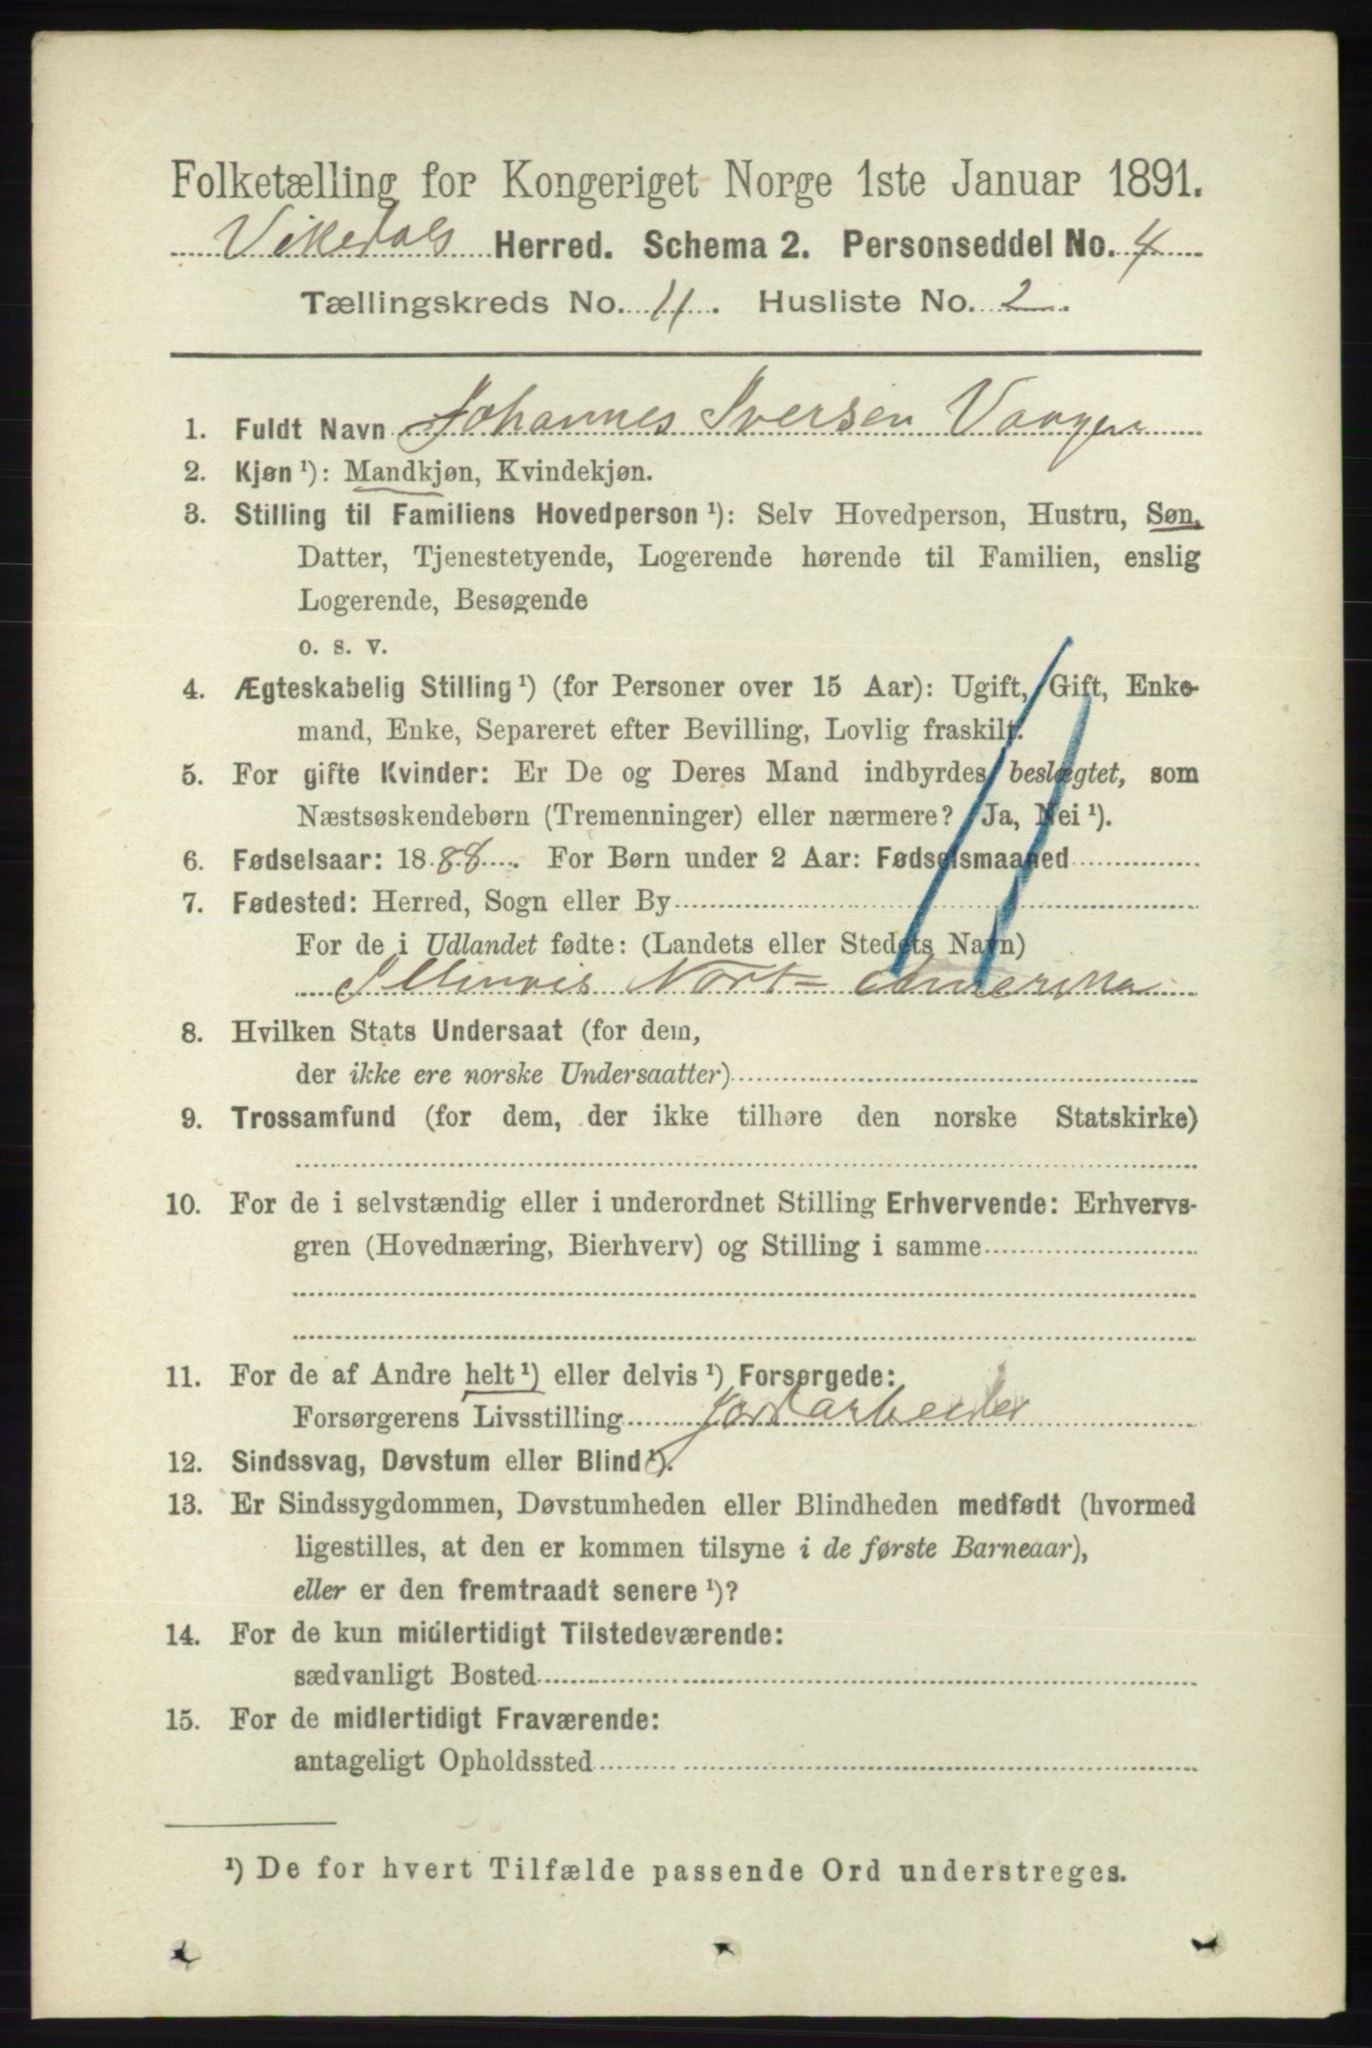 Folketælling for Kongeriget Norge 1ste Januar 1891.
Vikedals Herred. Schema 2. Personseddel No. 4
Tællingskreds No. 11. Husliste No. 2.
1. Fuldt Navn Johannes Iversen Vaagen
2. Kjøn ¹): Mandkjøn, Kvindekjøn.
3. Stilling til Familiens Hovedperson ¹): Selv Hovedperson, Hustru, Søn,
Datter, Tjenestetyende, Logerende hørende til Familien, enslig
Logerende, Besøgende
o. s. v.
4. Ægteskabelig Stilling ¹) (for Personer over 15 Aar): Ugift, Gift, Enke-
mand, Enke, Separeret efter Bevilling, Lovlig fraskilt.
5. For gifte Kvinder: Er De og Deres Mand indbyrdes beslægtet, som
Næstsøskendebørn (Tremenninger) eller nærmere? Ja, Nei ¹).
6. Fødselsaar: 1888. For Børn under 2 Aar: Fødselsmaaned
7. Fødested: Herred, Sogn eller By
For de i Udlandet fødte: (Landets eller Stedets Navn)
Illinois Nort-Amerika
8. Hvilken Stats Undersaat (for dem,
der ikke ere norske Undersaatter)
9. Trossamfund (for dem, der ikke tilhøre den norske Statskirke)
10. For de i selvstændig eller i underordnet Stilling Erhvervende: Erhvervs-
gren (Hovednæring, Bierhverv) og Stilling i samme
11. For de af Andre helt ¹) eller delvis ¹) Forsørgede:
Forsørgerens Livsstilling Jordarbeider
12. Sindssvag, Døvstum eller Blind ¹).
13. Er Sindssygdommen, Døvstumheden eller Blindheden medfødt (hvormed
ligestilles, at den er kommen tilsyne i de første Barneaar),
eller er den fremtraadt senere ¹)?
14. For de kun midlertidigt Tilstedeværende:
sædvanligt Bosted
15. For de midlertidigt Fraværende:
antageligt Opholdssted
¹) De for hvert Tilfælde passende Ord understreges.